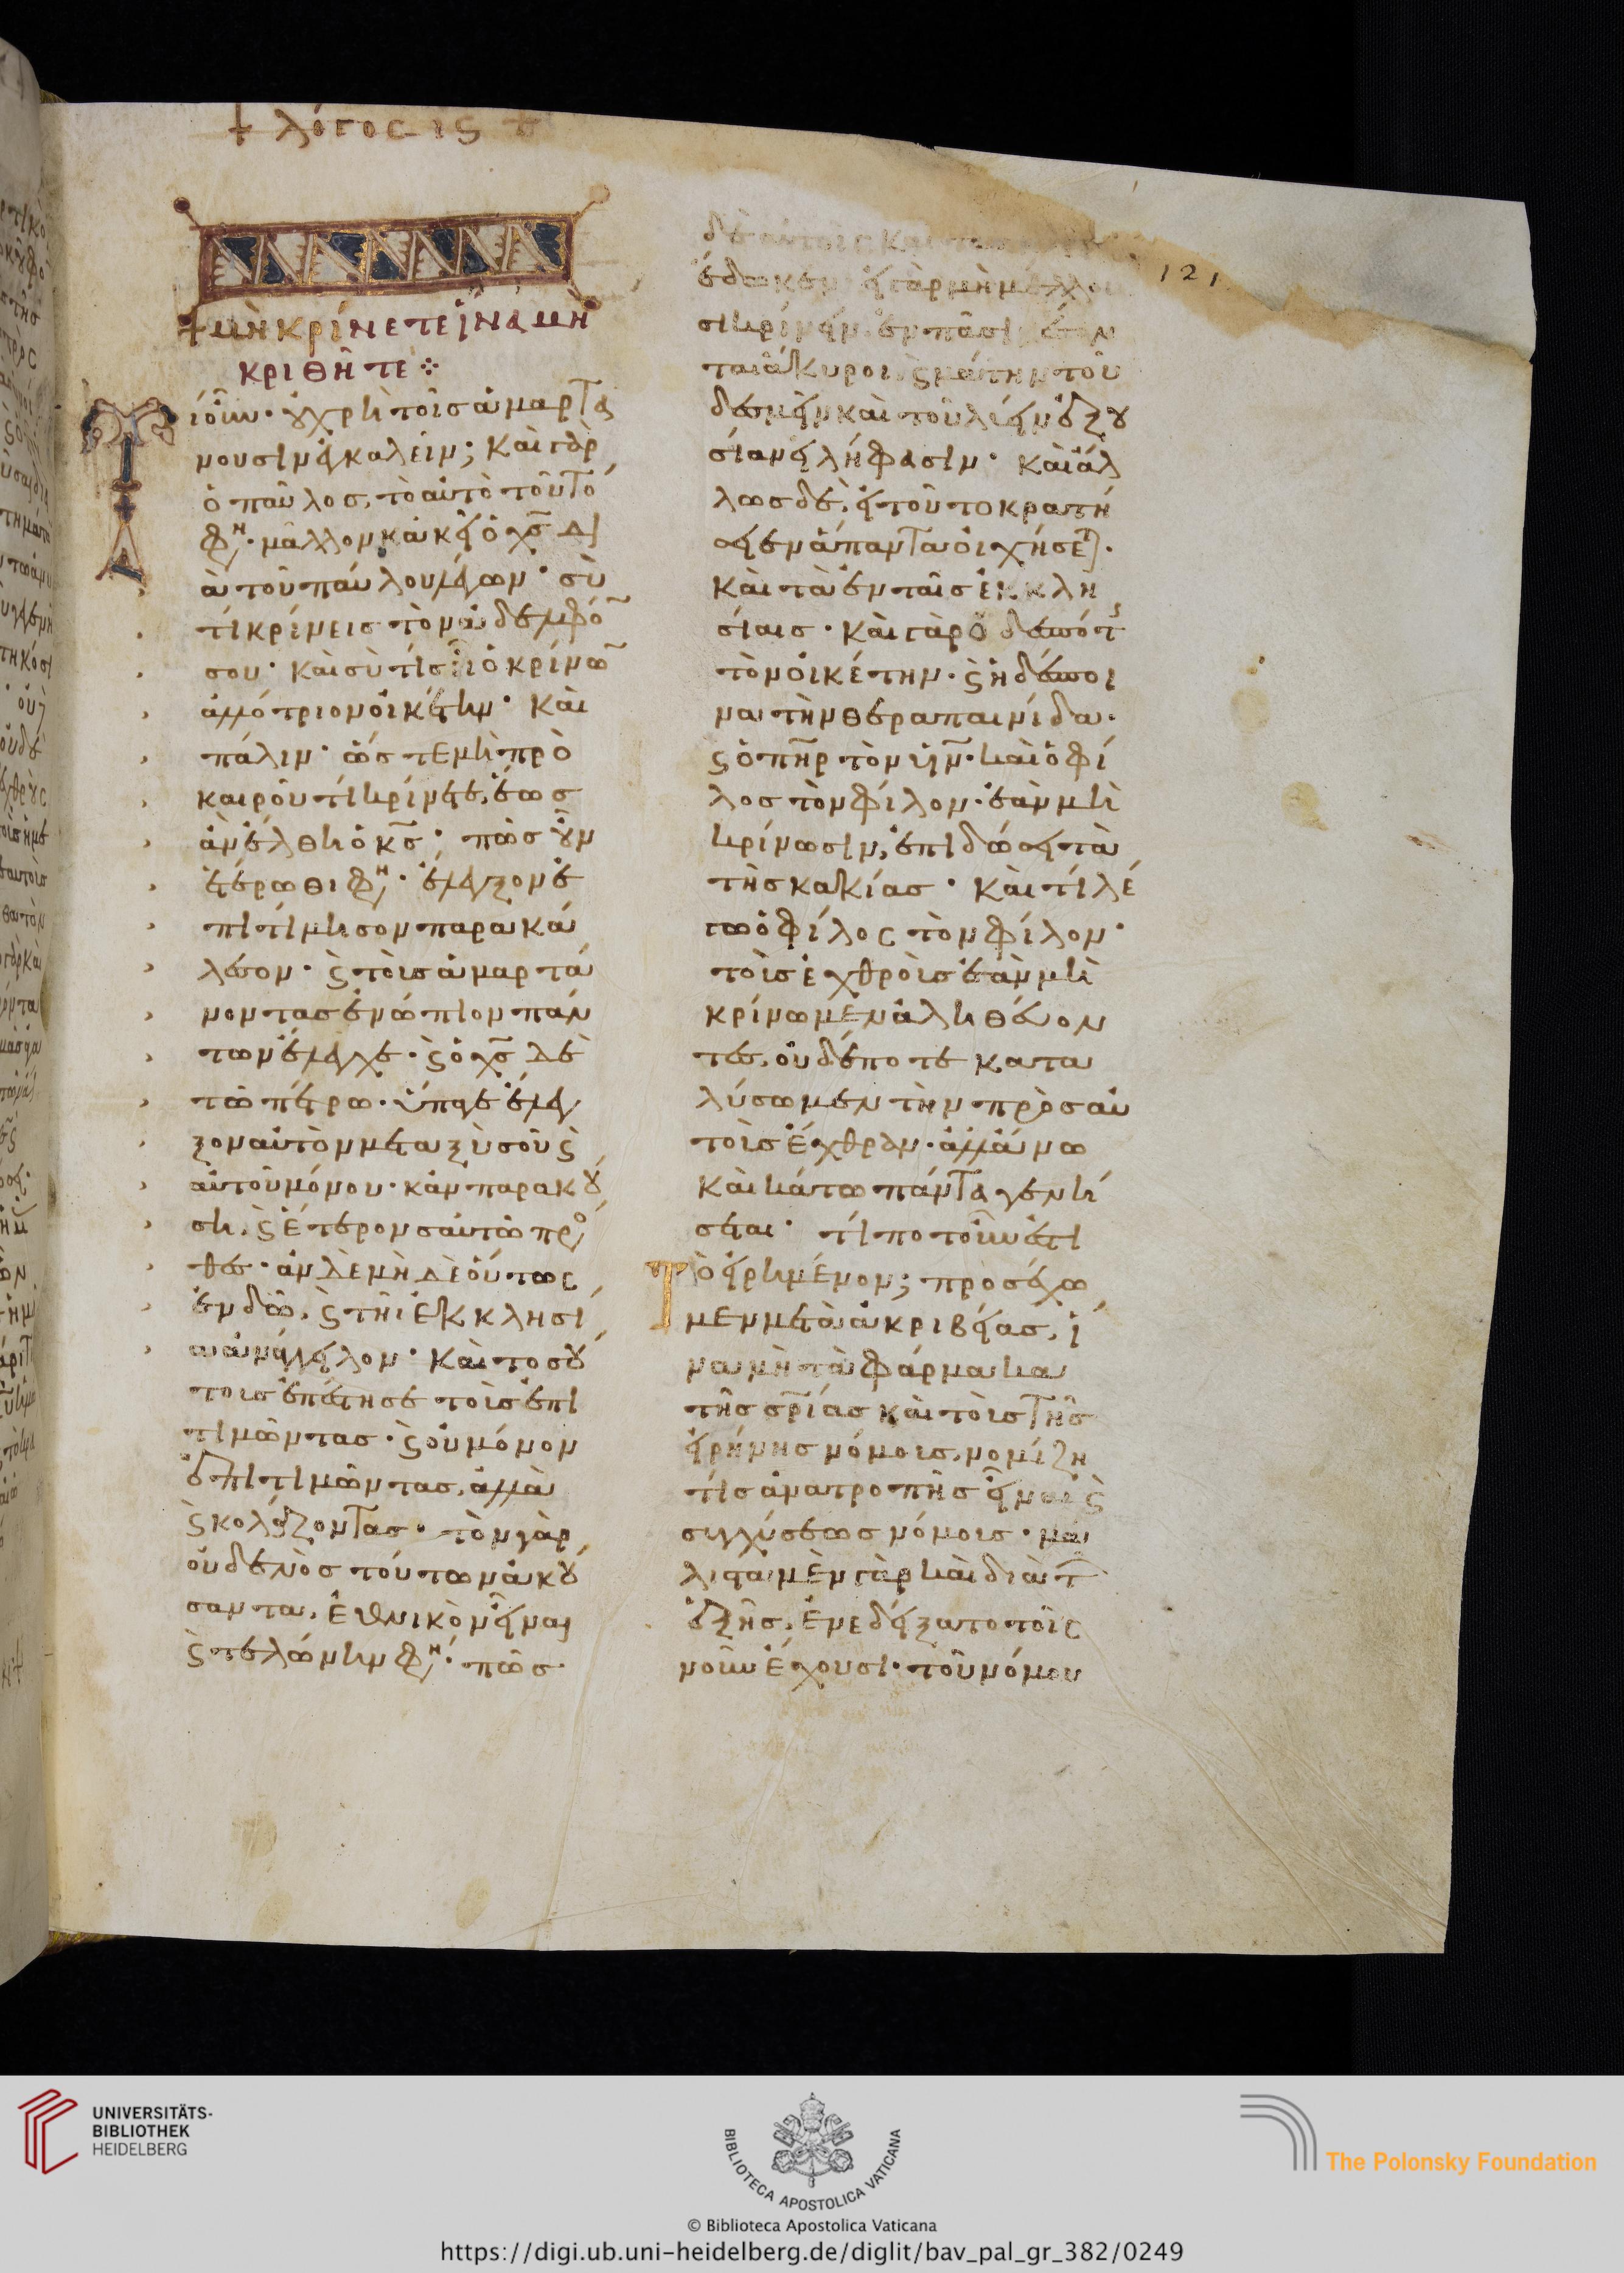 + λόγος ις +
+ μὴ κρίνετε ἵνα μὴ
κριθῆτε
Τί οὖν· οὐ χρὴ τοῖς ἁμαρτά
νουσιν ἐγκαλεῖν; καὶ γὰρ
ὁ παῦλος, τὸ αὐτὸ τοῦτό
φη· μᾶλλον κἀκεῖ ὁ χς δι
ὰ τοῦ παύλου λέγων· σὺ
τί κρίνεις τὸν ἀδελφό
σου· καὶ σὺ τίς εἶ ὁ κρίνω
ἀλλότριον οἰκέτην· καὶ
πάλιν· ὥστε μὴ πρὸ
καιροῦ τί κρίνετε, ἕως
ἂν ἔλθη ὁ κς· πῶς οὖν
ἑτέρωθί φη· ἔλεγξον ἐ
πιτίμησον παρακά
λεσον· ϛ τοὺς ἁμαρτά
νοντας ἐνώπιον πάν
των ἔλεγχε· ϛ ὁ χς δὲ
τῶ πέτρω· ὕπαγε ἔλεγ
ξον αὐτὸν μεταξὺ σοῦ ϛ
αὐτοῦ μόνου· κἂν παρακού
ση, ϛ ἕτερον σαυτῶ πρό
θες· ἂν δὲ μὴ δὲ οὕτως
ἐνδῶ, ϛ τῆι ἐκκλησί
α ἀνάγγειλον· καὶ τοσού
τοις ἐπέστησε τοῖς ἐπι
τιμῶντας· ϛ οὐ μόνον
ἐπιτιμῶντας, ἀλλὰ
ϛ κολάζοντας· τὸν γὰρ
οὐδενὸς τούτων ἀκού
σαντα, ἐθνικὸν εἶναι
ϛ τελώνην φη· πῶς
δὲ αὐτοῖς καὶ
ἔδωκεν εἰ γὰρ μὴ μέλλοι
σι κρίνειν ἐν πᾶσι ἔσον
ται ἄκυροι, ϛ μάτην τοῦ
δεσμεῖν καὶ τοῦ λύειν ἐξου
σίαν εἰλήφασιν· καὶ ἄλ
λως δὲ, εἰ τοῦτο κρατή
σειεν ἅπαντα οἰχήσετ·
καὶ τὰ ἐν ταῖς ἐκκλη
σίαις· καὶ γὰρ ὁ δεσπότ
τὸν οἰκέτην· ϛ ἡ δέσποι
να τὴν θεραπαινίδα·
ϛ ὁ πηρ τὸν υἱν· καὶ ὁ φί
λος τὸν φίλον· ἐὰν μὴ
κρίνωσιν, ἐπιδώσει τὰ
τῆς κακίας· καὶ τί λέ
γω ὁ φίλος τὸν φίλον·
τοῖς ἐχθροῖς ἐὰν μὴ
κρίνωμεν ἀληθεύον
τες, οὐδέποτε κατα
λύσωμεν τὴν πρὸς αὐ
τοὺς ἔχθραν· ἀλλὰ ἄνω
καὶ κάτω πάντα γενή
σεται· τί ποτ οὖν ἐστὶ
Τὸ εἰρημένον; προσέχω
μεν μετὰ ἀκριβείας, ἵ
να μὴ τὰ φάρμακα
τῆς σρίας καὶ τοὺς τῆς
εἰρήνης νόμους, νομίζη
τίς ἀνατροπῆς εἶναι ϛ
συγχύσεως νόμους· μά
λιστα μὲν γὰρ καὶ διὰ τ
ἑξῆς, ἐνεδείξατο τοῖς
νοῦν ἔχουσι· τοῦ νόμου
121
UNIVERSITÄTS-
BIBLIOTHEK
HEIDELBERG
BIBLIOTECA APOSTOLICA VATICANA
© Biblioteca Apostolica Vaticana
The Polonsky Foundation
https://digi.ub.uni-heidelberg.de/diglit/bav_pal_gr_382/0249